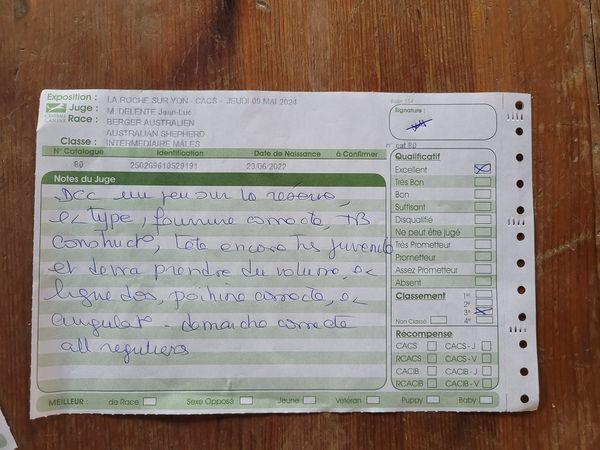 Exposition : LA ROCHE SUR YON - CACS - JEUDI 09 MAI 2024
Juge : M. DELENTE Jean-Luc
Race : BERGER AUSTRALIEN
AUSTRALIAN SHEPHERD
Classe : INTERMEDIAIRE MALES
Signature :
n° cat 80
N° Catalogue Identification Date de Naissance à Confirmer
80 250269610529191 23/06/2022
Notes du Juge
un peu sur la réserve
type, fourrure correcte, TB
construit, tete encore très juvenile
et devra prendre du volume, ex
ligne dos, poitrine correcte, ex
angulat. demarche correcte
all reguliers
Qualificatif
Excellent
Très Bon
Bon
Suffisant
Disqualifié
Ne peut être jugé
Très Prometteur
Prometteur
Assez Prometteur
Absent
Classement 1er
2e
3e
Non Classé 4e
Récompense
CACS CACS - J
RCACS CACS - V
CACIB CACIB - J
RCACIB CACIB - V
MEILLEUR : de Race Sexe Opposé Jeune Vétéran Puppy Baby